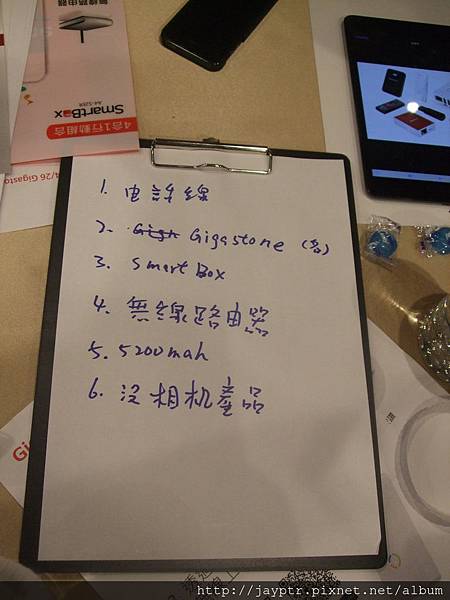 無線路由器
A4-52ER
SmartBox
4合1行動組合
4/26 Gigasto
1. 电話線
2. Gigastone (名)
3. Smart Box
4. 無線路由器
5. 5200mah
6. 沒相机產品
Gi
http://jayptr.pixnet.net/album